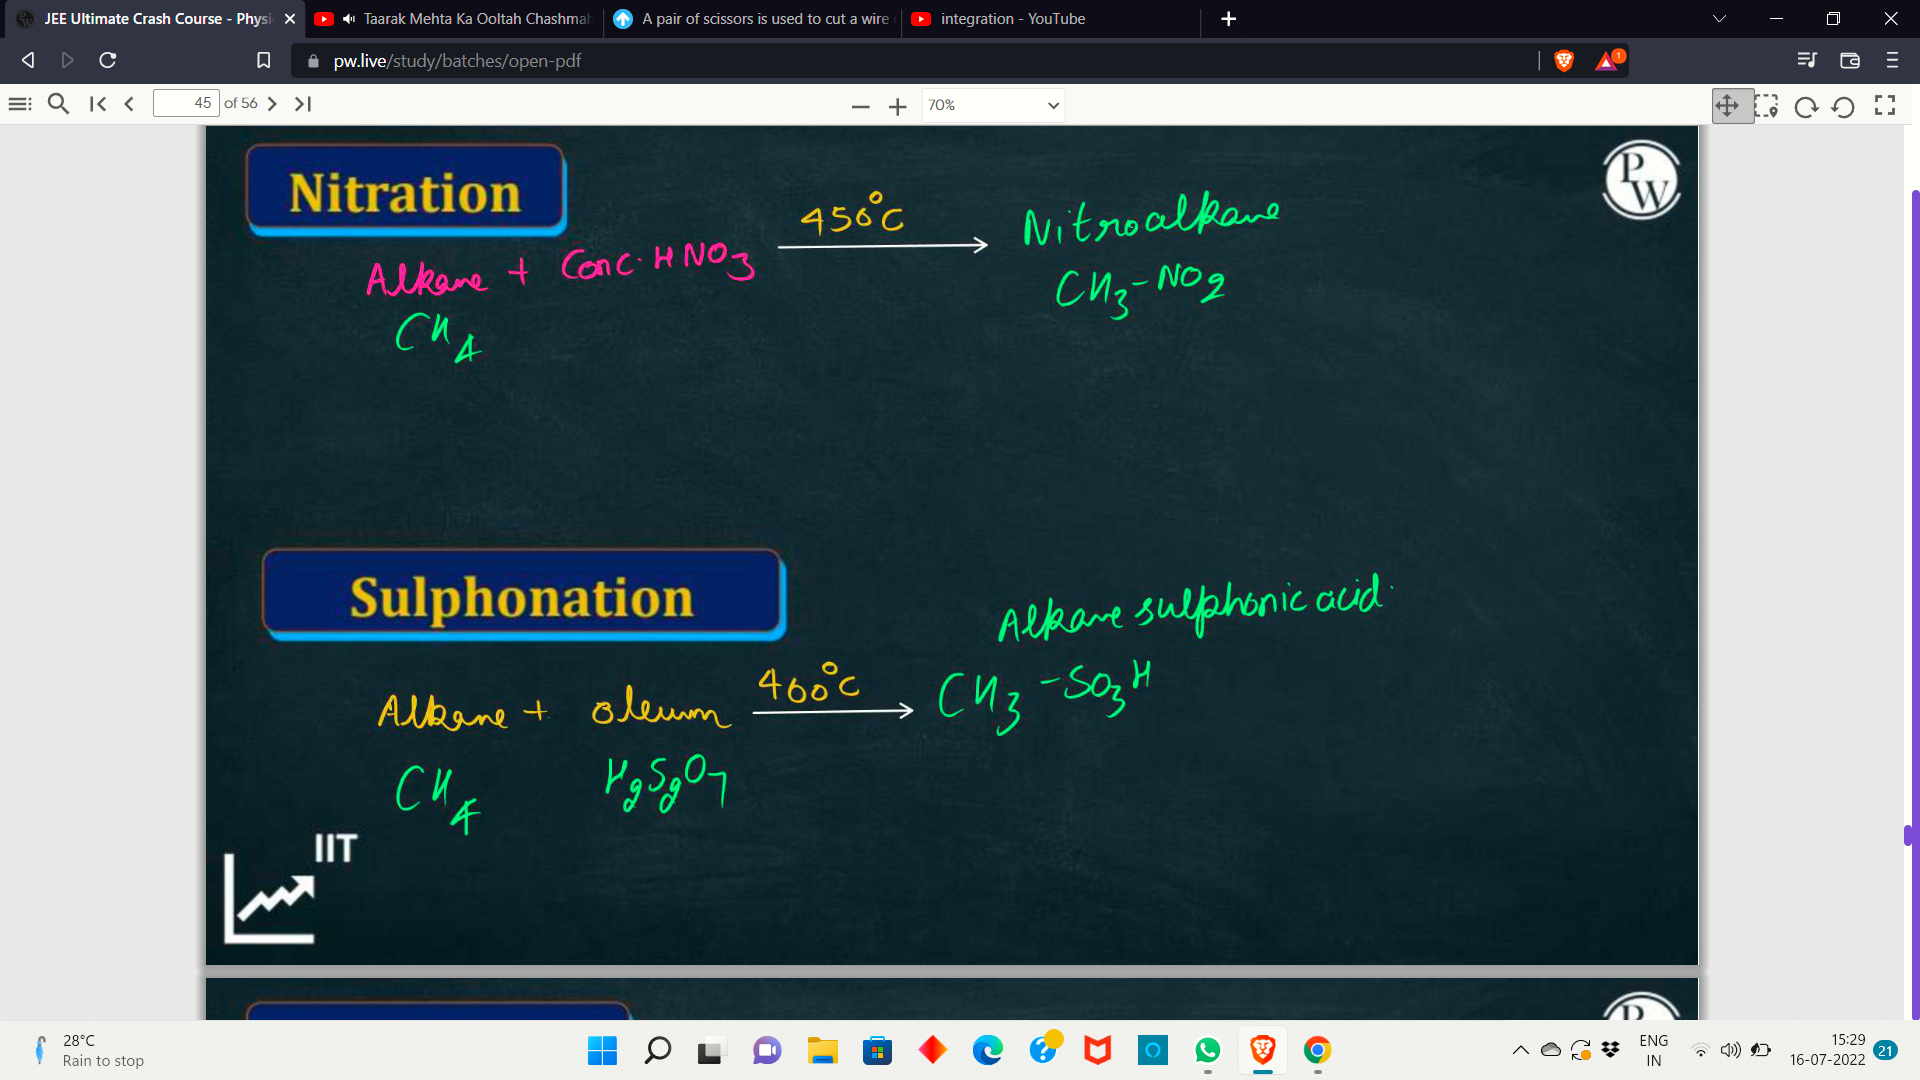 JEE Ultimate Crash Course - Physi
Taarak Mehta Ka Ooltah Chashmah
A pair of scissors is used to cut a wire
integration - YouTube
pw.live/study/batches/open-pdf
1
45 of 56
70%
Nitration
PW
Alkane + Conc. HNO3 450°C Nitroalkane
CH4 CH3-NO2
Sulphonation
Alkane sulphonic acid.
Alkane + oleum 400°C CH3-SO3H
CH4 H2S2O7
IIT
28°C
Rain to stop
ENG
IN
15:29
16-07-2022
21